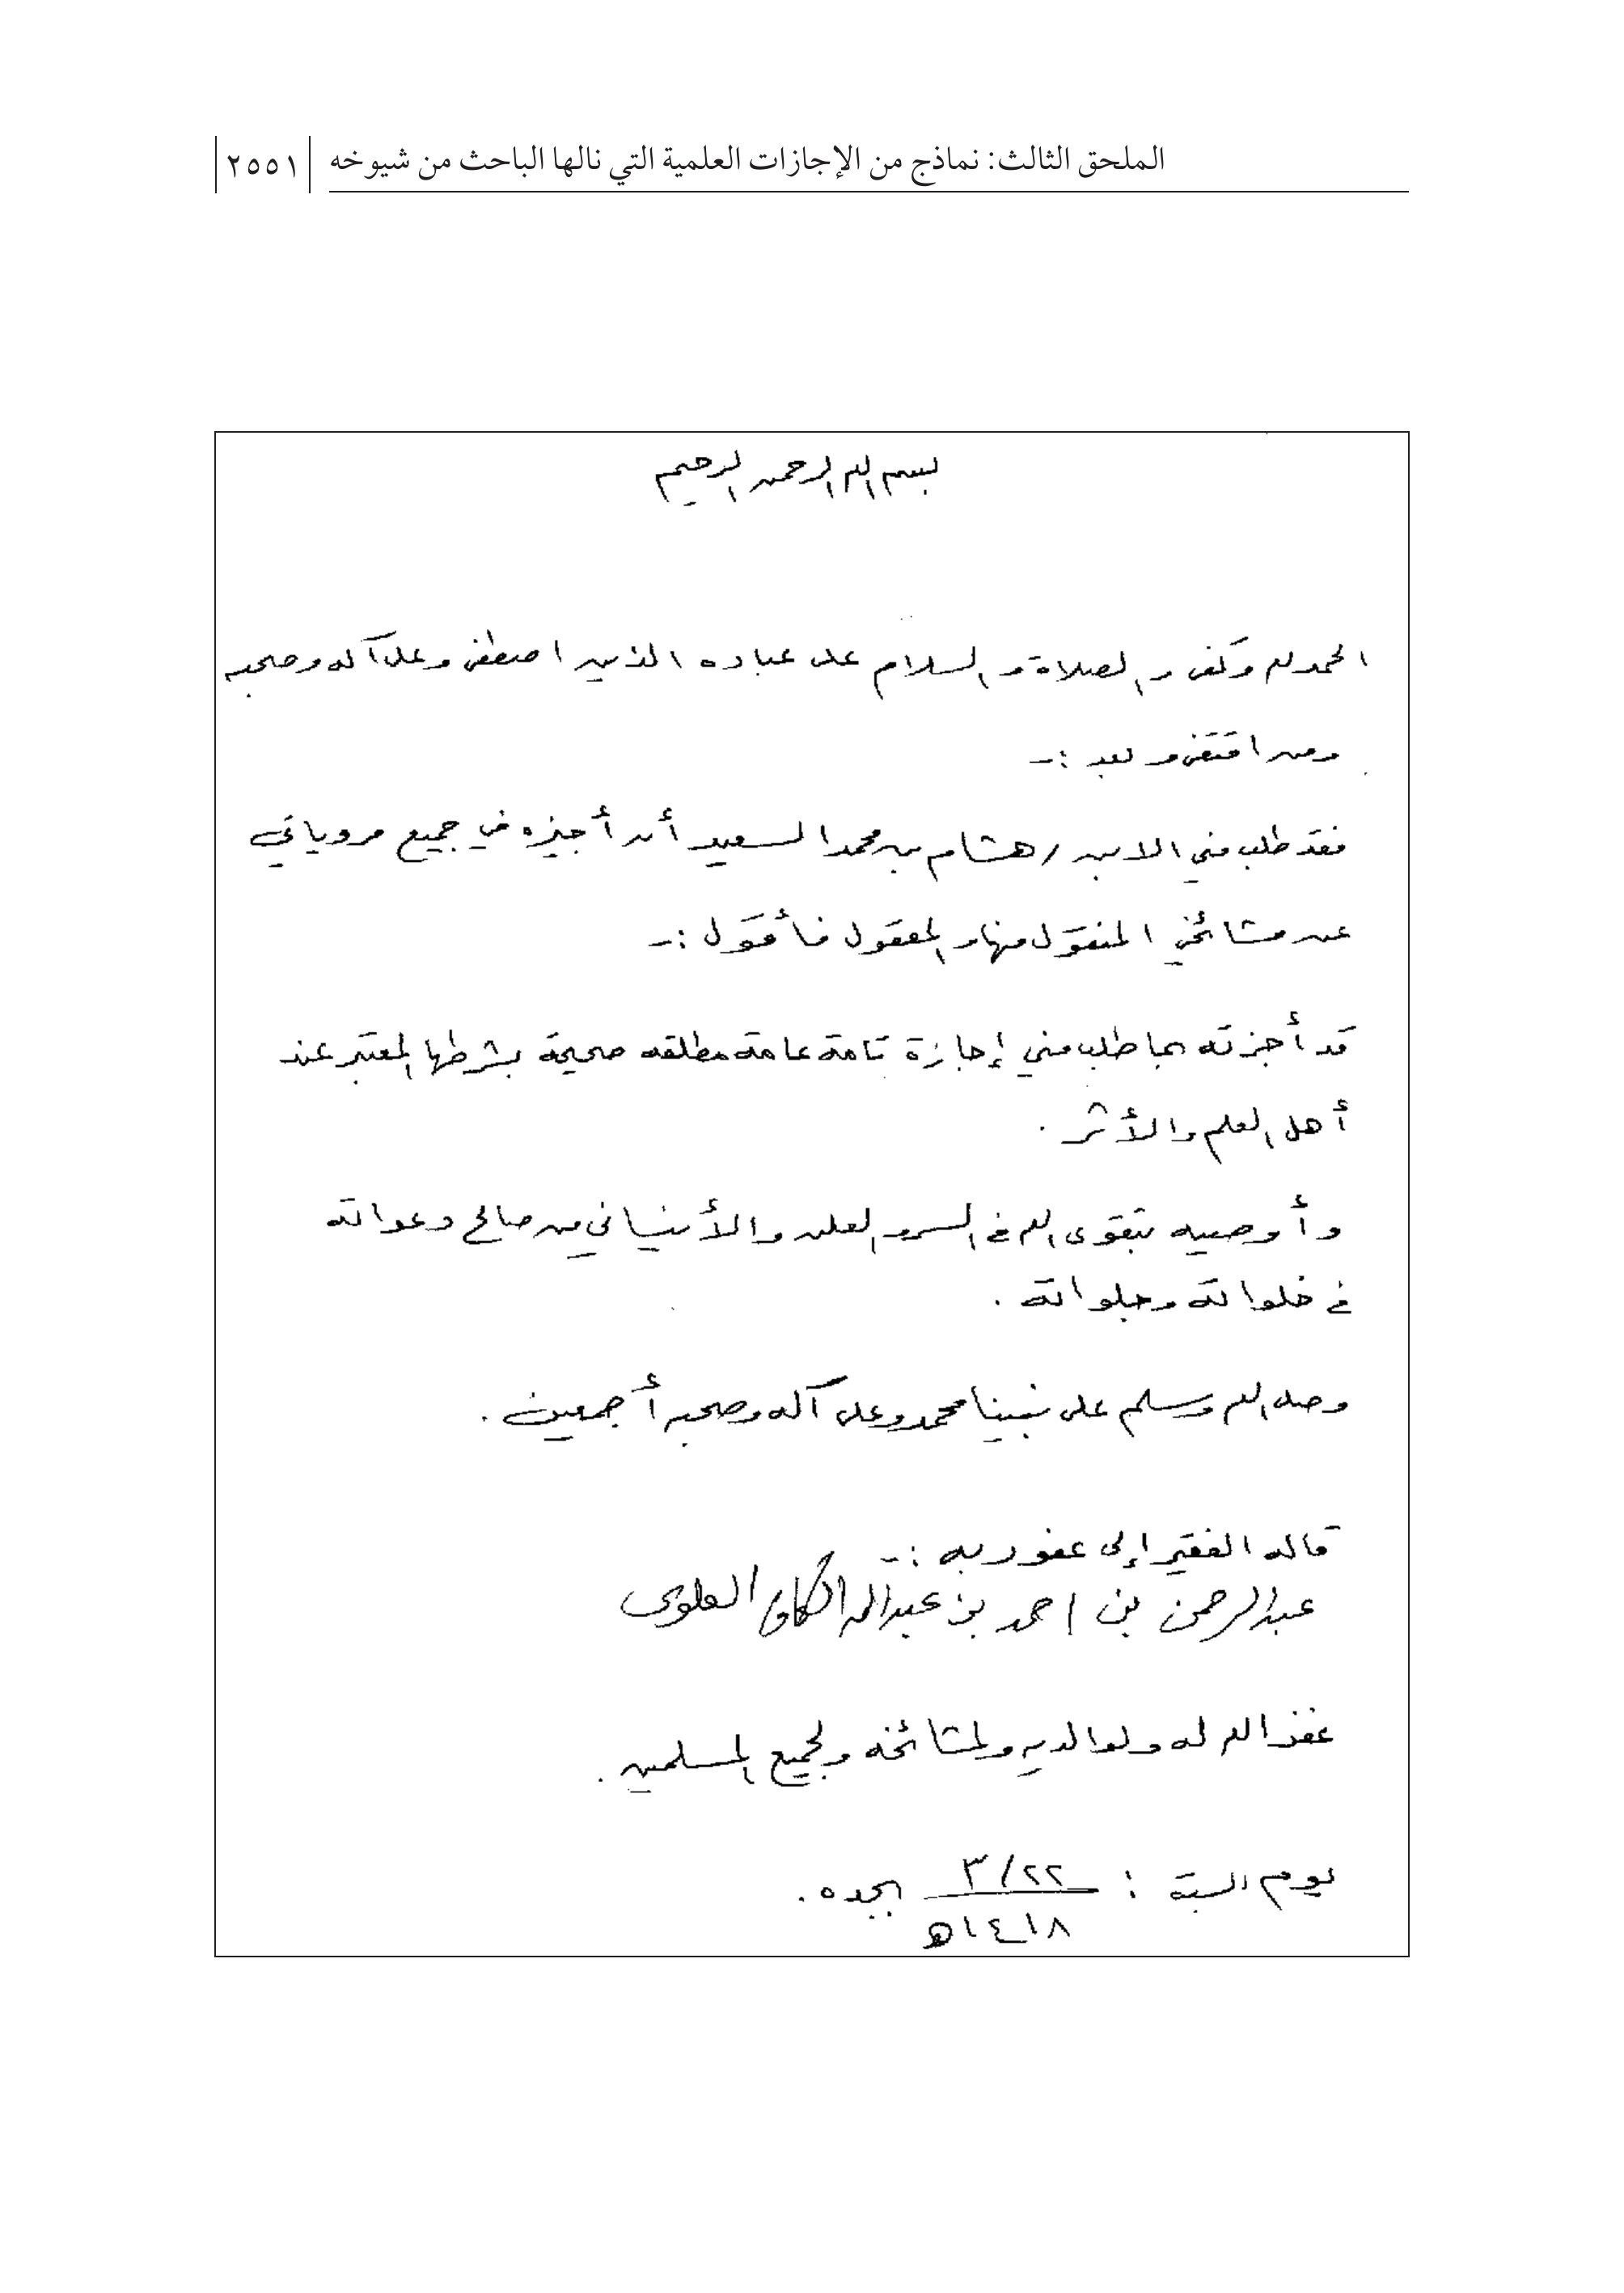 الملحق الثالث: نماذج من الإجازات العلمية التي نالها الباحث من شيوخه ٢٥٥١
بسم الله الرحمن الرحيم
الحمد لله وكفى والصلاة والسلام على عباده الذين اصطفى وعلى آله وصحبه
ومن اقتفى وبعد :-
فقد طلب مني الابن / هشام بن محمد السعيد أن أجيزه في جميع مروياتي
عن مشائخي المنقول منها والمعقول فأقول :-
قد أجزته بما طلب مني إجازة تامة عامة مطلقه صحيحة بشرطها المعتبر عند
أهل العلم والأثر .
وأوصيه بتقوى الله في السر والعلن والأ ينساني من صالح دعواته
في خلواته وجلواته .
وصلى الله وسلم على نبينا محمد وعلى آله وصحبه أجمعين .
قاله الفقير إلى عفو ربه :-
عبدالرحمن بن احمد بن عبدالله الكاف العلوى
غفر الله له ولوالديه ولمشائخه ولجميع المسلمين .
يوم السبت : ٣/٢٢ بجده .
١٤١٨ه